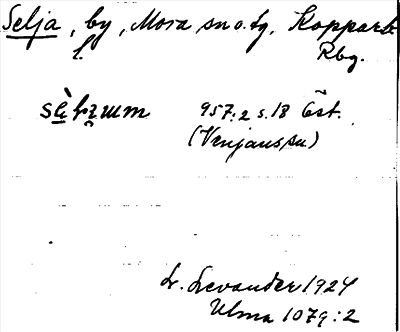 Selja, by, Mora sn o. tg, Kopparb.
l. Rbg.
957:2 s. 18 Öst.
(Venjans sn)
L. Levander 1924
Ulma 1079:2